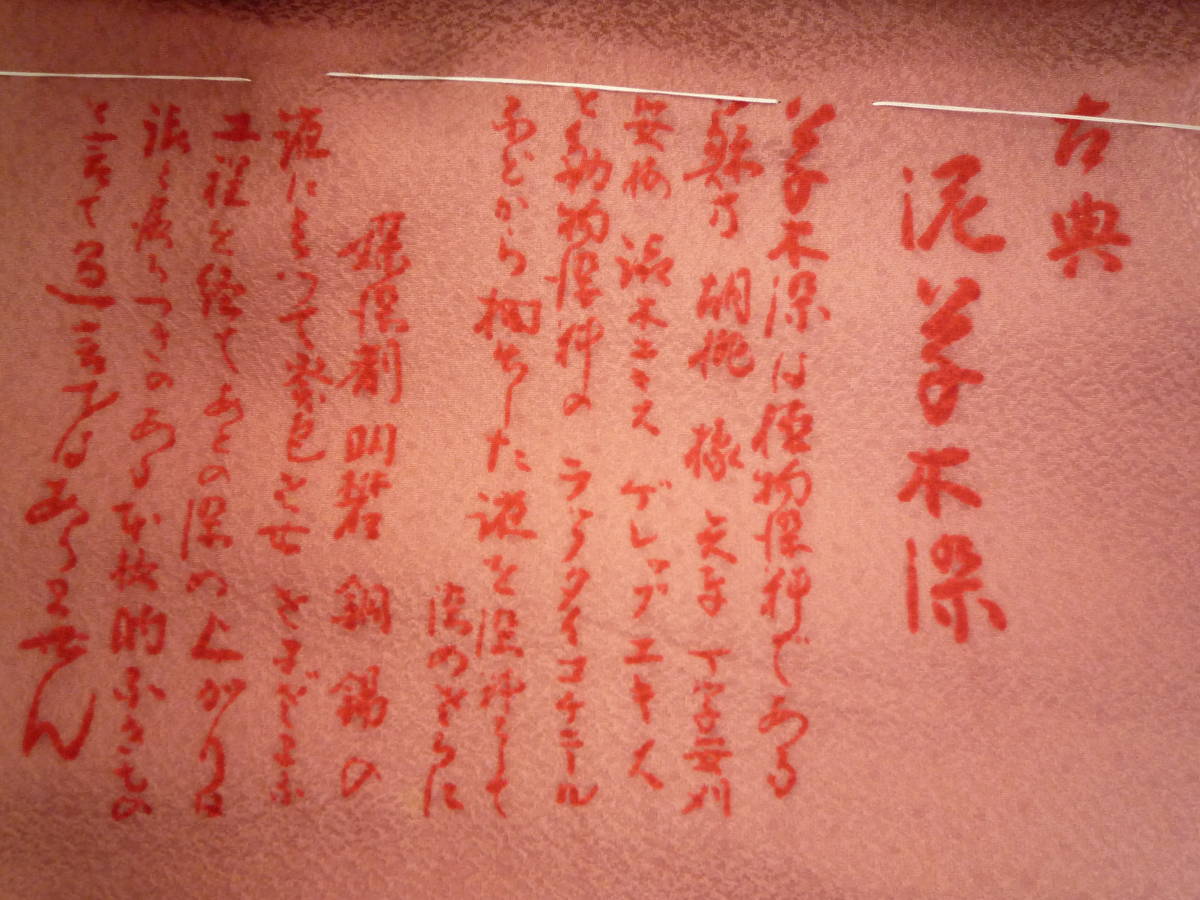 古典
泥草木染
草木染は植物染料である
蘇芳 胡桃 橡 矢车 丁字 安刈
安梅 渋木エキス ゲレップエキス
と動物染料の ラックダイコチニール
などから抽出した液を染料として
染めさらに
媒染剤 明礬 銅 錫の
液によって発色させ さまざまな
工程を経てあとの染め上がりは
渋く落ちつきのある 本格的なもの
と言って過言ではありません